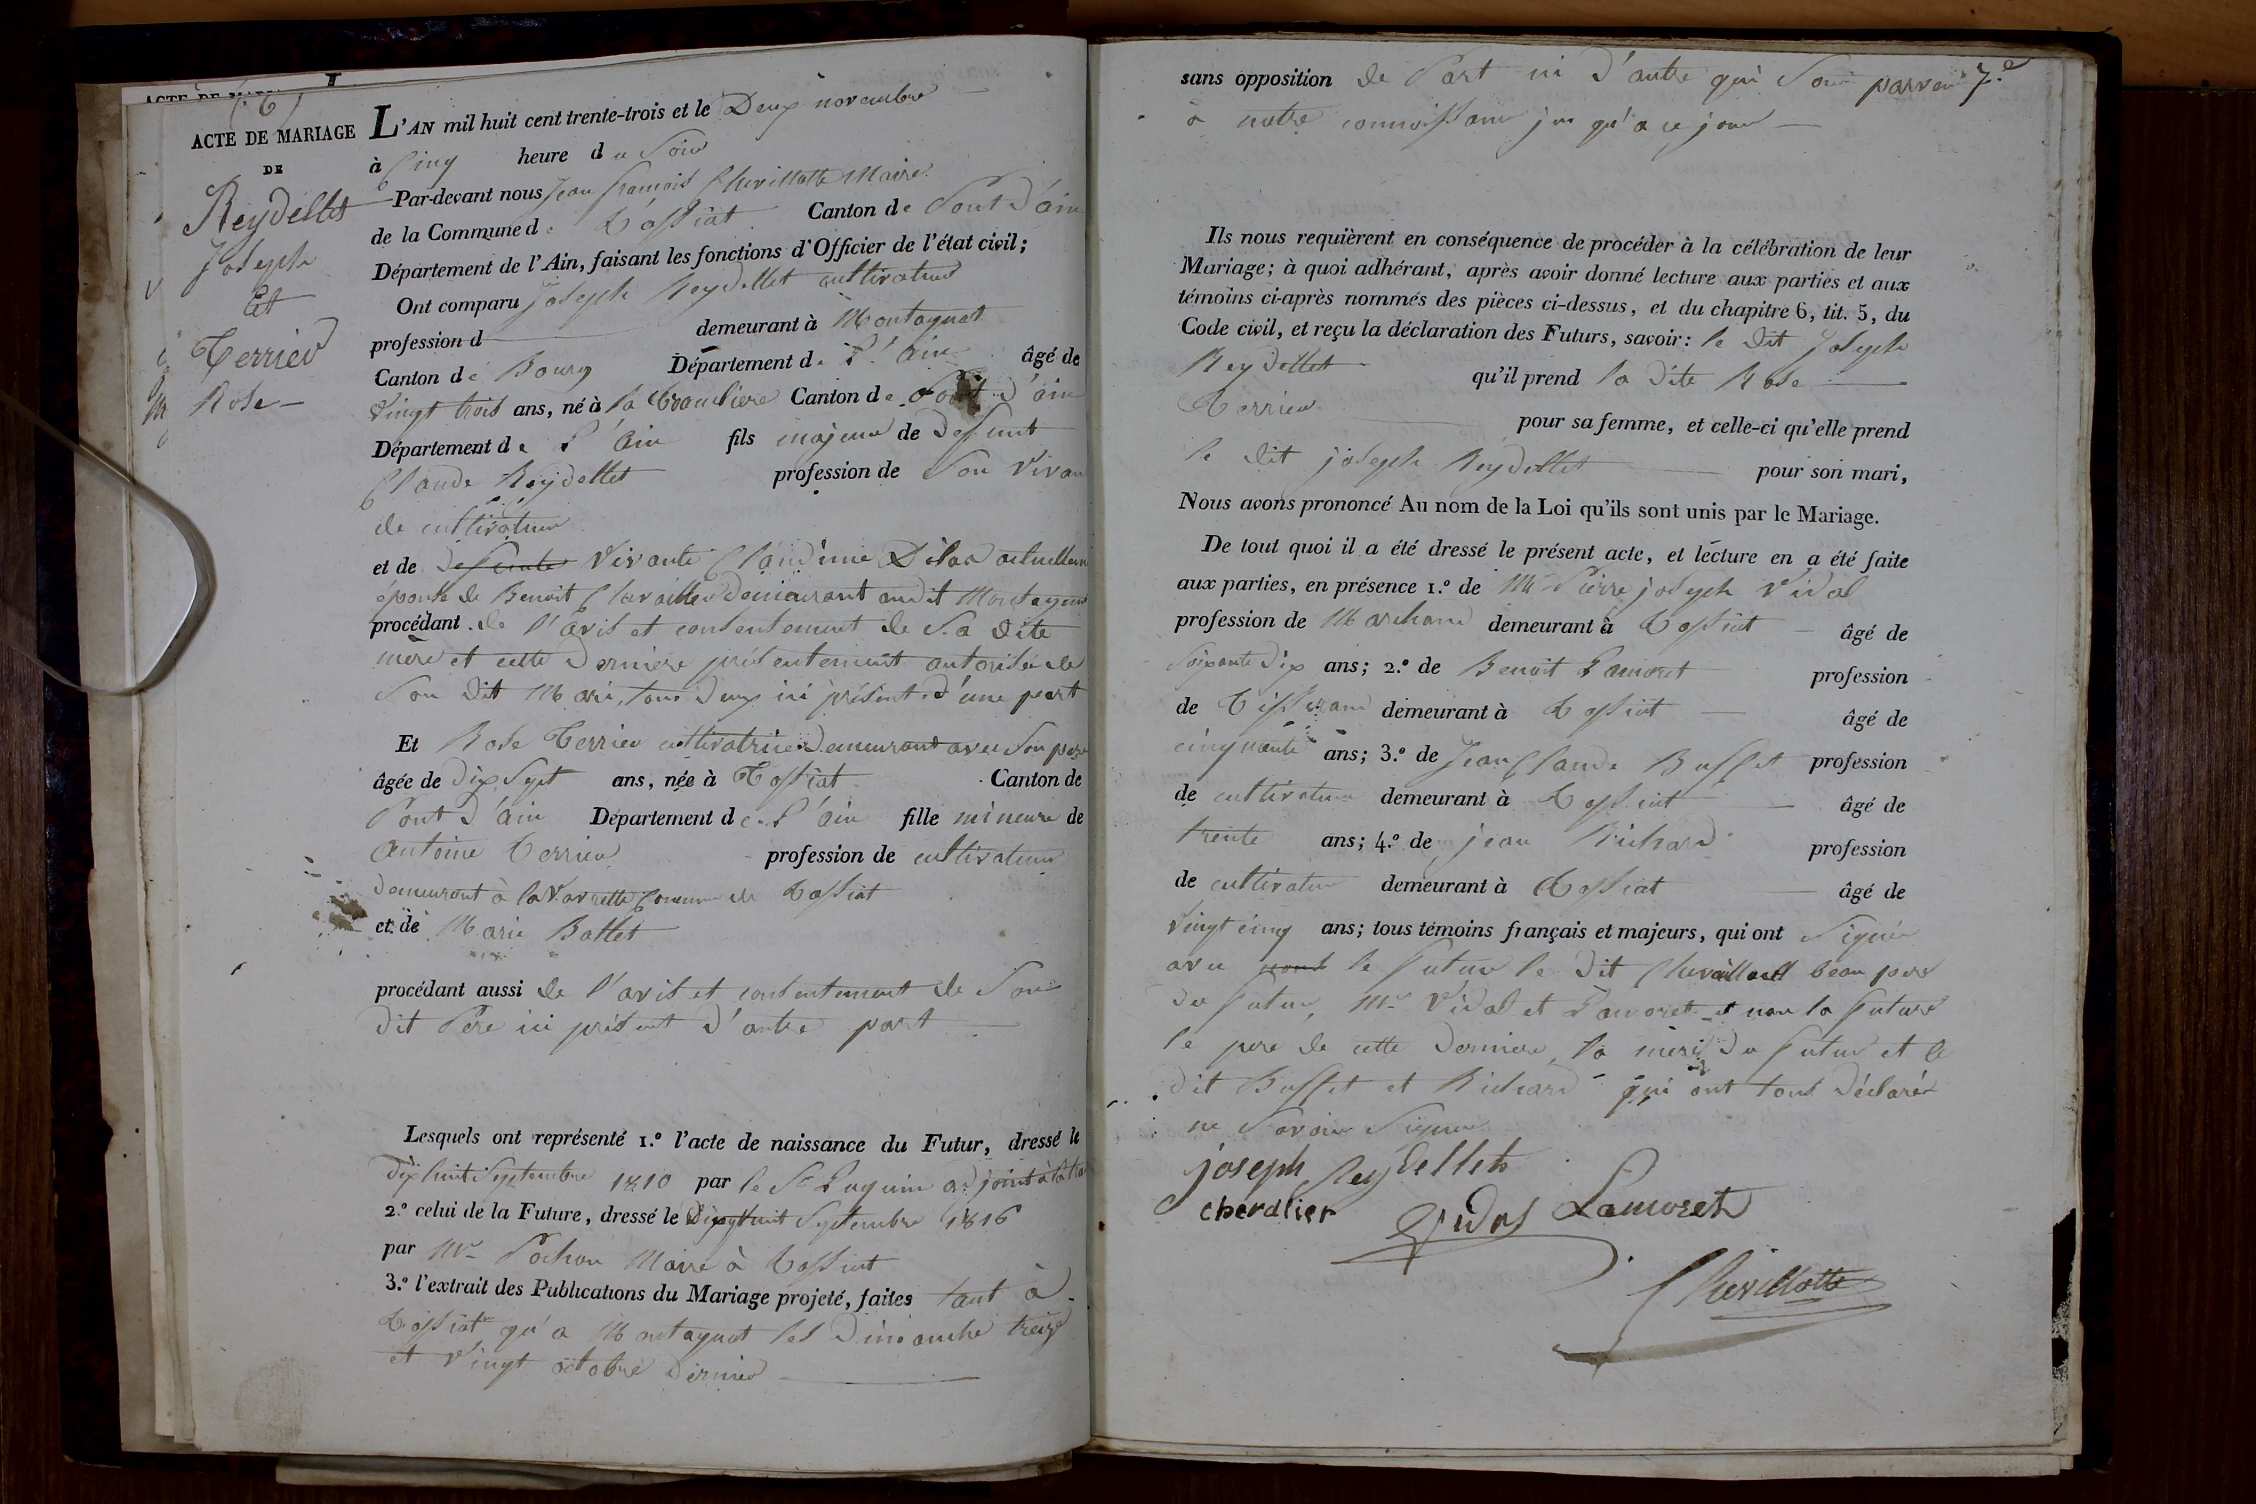 (6)
ACTE DE MARIAGE
DE
Reydellet
Joseph
Et
Terrier
Rose
L'AN mil huit cent trente-trois et le Deux novembre
à Cinq heure du Soir
Par-devant nous Jean françois Chevillotte Maire
de la Commune de Tossiat Canton de Pont D'ain
Département de l'Ain, faisant les fonctions d'Officier de l'état civil;
Ont comparu Joseph Reydellet cultivateur
profession d demeurant à Montagnat
Canton de Bourg Département de L'ain âgé de
Vingt trois ans, né à la Tranclière Canton de Pont D'ain
Département de L'Ain fils majeur de Defunt
Claude Reydellet profession de Son Vivan
de cultivateur
et de Defunte Vivante Claudine actuellem
épouse de Benoit Chevallier Demeurant audit Montagnat
procédant de l'avis et consentement de Sa Dite
mère et cette Derniere présentement autorisée de
Son Dit Mari, tous Deux ici présent D'une part
Et Rose Terrier cultivatrice Demeurant avec Son pere
âgée de Dix Sept ans, née à Tossiat Canton de
Pont D'ain Département de L'ain fille mineure de
Antoine Terrier profession de cultivateur
Demeurant à la Commune de Tossiat
et de Marie Ballet
procédant aussi de l'avis et consentement de Son
Dit Pere ici présent D'autre part
Lesquels ont représenté 1.º l'acte de naissance du Futur, dressé le
Dix huit Septembre 1810 par le Sr adjoint à la
2.º celui de la Future, dressé le Septembre 1816
par Mr Pochon Maire à Tossiat
3.º l'extrait des Publications du Mariage projeté, faites tant à
Tossiat qu'a Montagnat les Dimanche treize
et Vingt octobre Dernier
sans opposition de Part ni D'autre qui Soit parvenu 7.e
à notre connoissance jus qu'a ce jour
Ils nous requièrent en conséquence de procéder à la célébration de leur
Mariage; à quoi adhérant, après avoir donné lecture aux parties et aux
témoins ci-après nommés des pièces ci-dessus, et du chapitre 6, tit. 5, du
Code civil, et reçu la déclaration des Futurs, savoir: le Dit Joseph
Reydellet qu'il prend la Dite Rose
Terrier pour sa femme, et celle-ci qu'elle prend
le Dit joseph Reydellet pour son mari,
Nous avons prononcé Au nom de la Loi qu'ils sont unis par le Mariage.
De tout quoi il a été dressé le présent acte, et lecture en a été faite
aux parties, en présence 1.º de Mr Pierre joseph Vidal
profession de Marchand demeurant à Tossiat âgé de
Soixante Dix ans; 2.º de Benoit Lamoret profession
de Tisserand demeurant à Tossiat âgé de
cinquante ans; 3.º de Jean Claude Buffet profession
de cultivateur demeurant à Tossiat âgé de
trente ans; 4.º de jean Richard profession
de cultivateur demeurant à Tossiat âgé de
Vingt cinq ans; tous témoins français et majeurs, qui ont Signés
avec nous le futur le Dit beau pere
Du futur, Mr Vidal et Lamoret et non la future
le pere de cette Derniere, la mere Du futur et le
Dit Buffet et Richard qui ont tous Déclarés
ne Savoir Signer
joseph Reydellet
chevalier Vidal Lamoret
Chevillotte